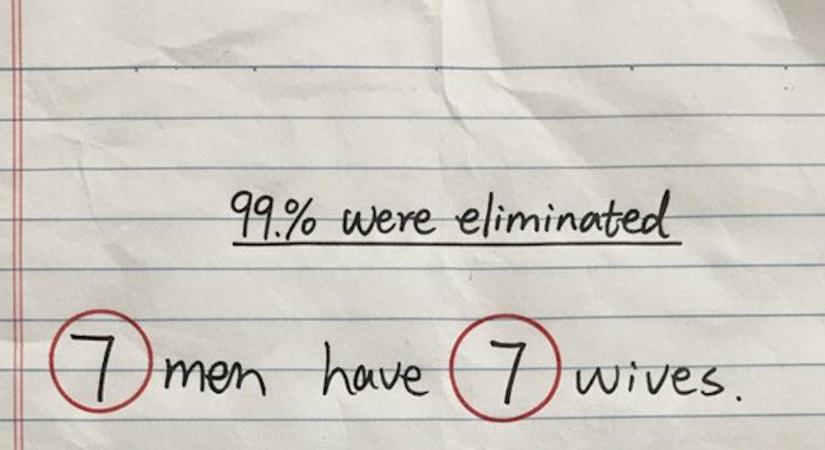 99.% were eliminated
7 men have 7 wives.